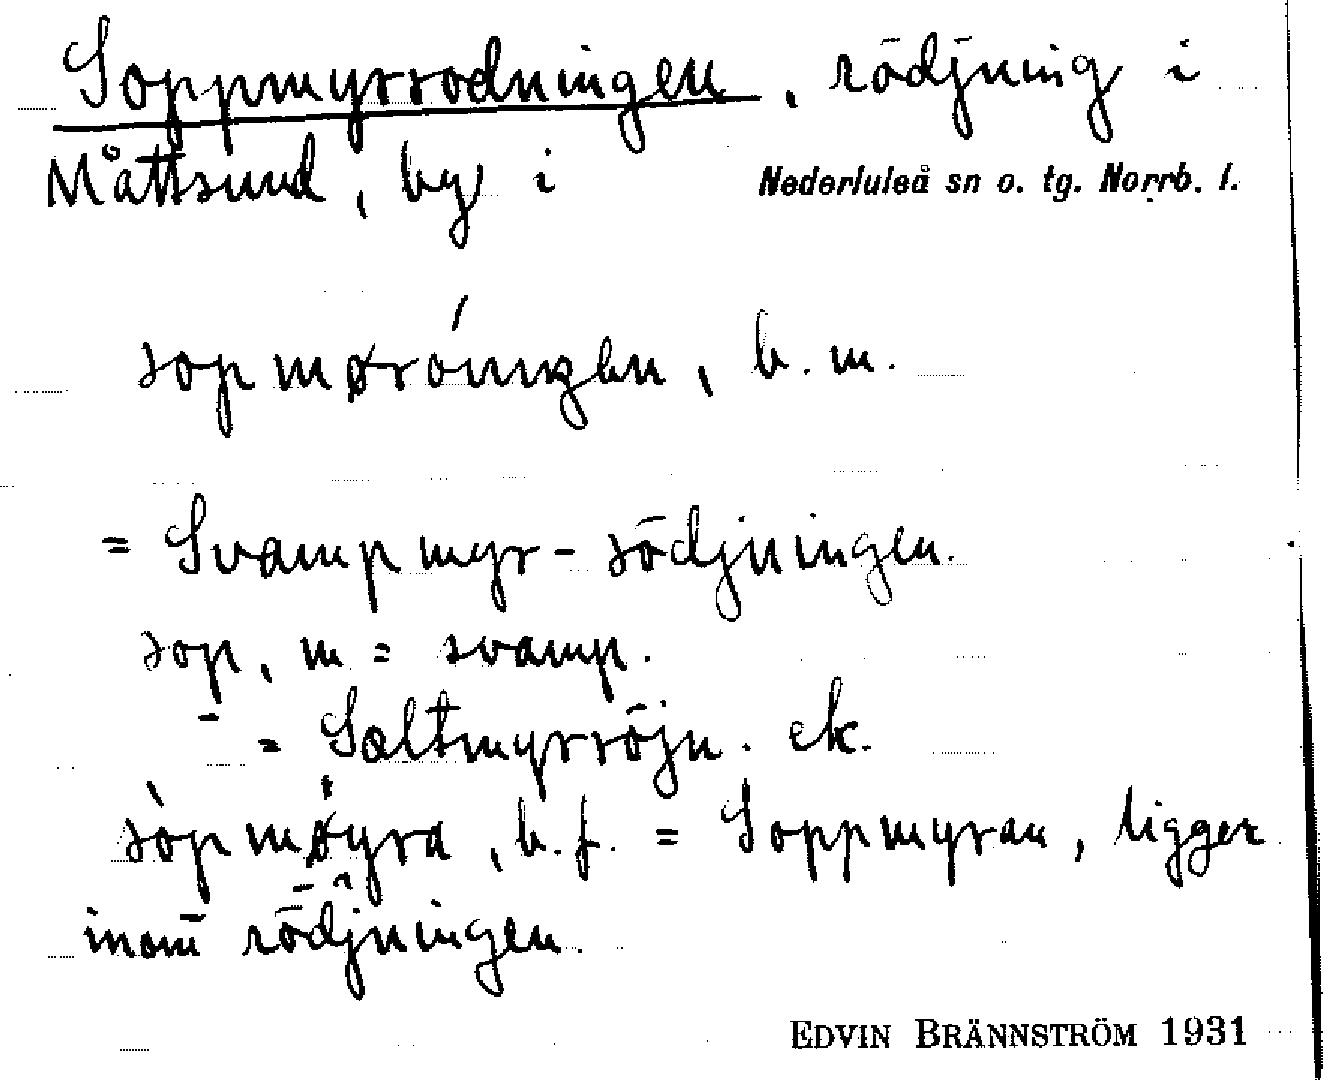 Soppmyrrodningen, rödjning i
Måttsund, by i Nederluleå sn o. tg. Norrb. l.
b. m.
= Svampmyr-rödjningen.
sop, m = svamp.
= Saltmyrröjn. ek.
b. f. = Soppmyran, ligger
inom rödjningen.
EDVIN BRÄNNSTRÖM 1931